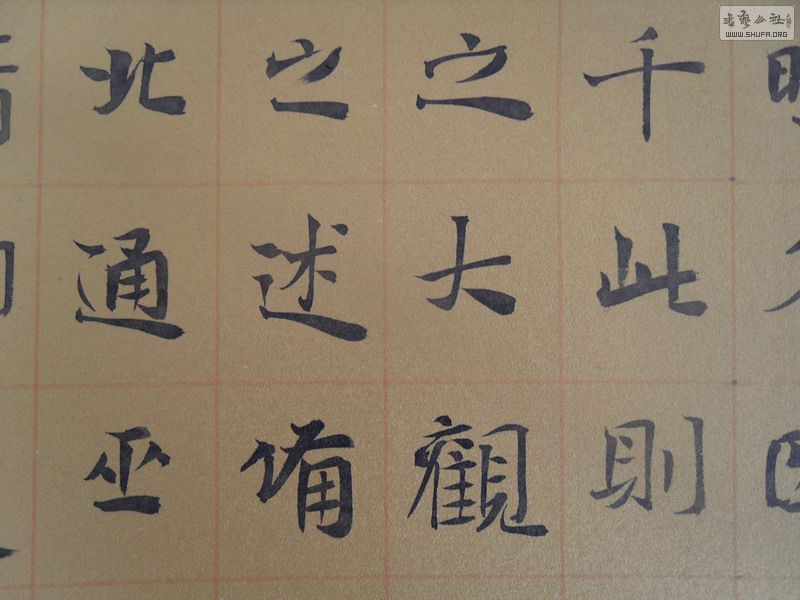 千此則
之大觀
之述備
北通巫
書藝公社
WWW.SHUFA.ORG